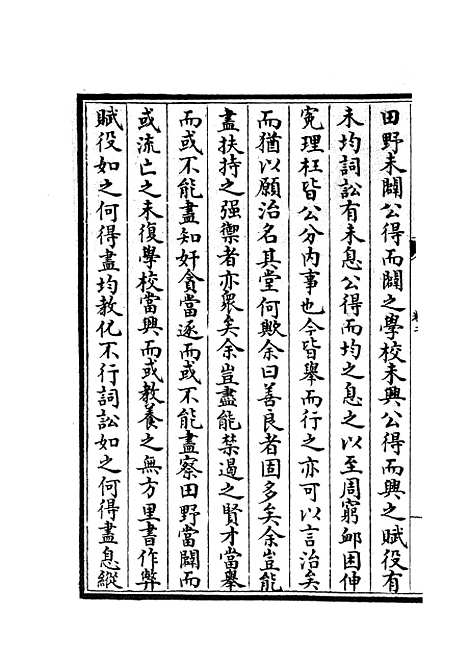 田野未闢公得而闢之學校未興公得而興之賦役有
未均詞訟有未息公得而均之息之以至周窮卹困伸
寃理枉皆公分内事也今皆舉而行之亦可以言治矣
而猶以願治名其堂何歟余曰善良者固多矣余豈能
盡扶持之强禦者亦衆矣余豈盡能禁遏之賢才當舉
而或不能盡知奸貪當逐而或不能盡察田野當闢而
或流亡之未復學校當興而或教養之無方里書作弊
賦役如之何得盡均教化不行詞訟如之何得盡息縱